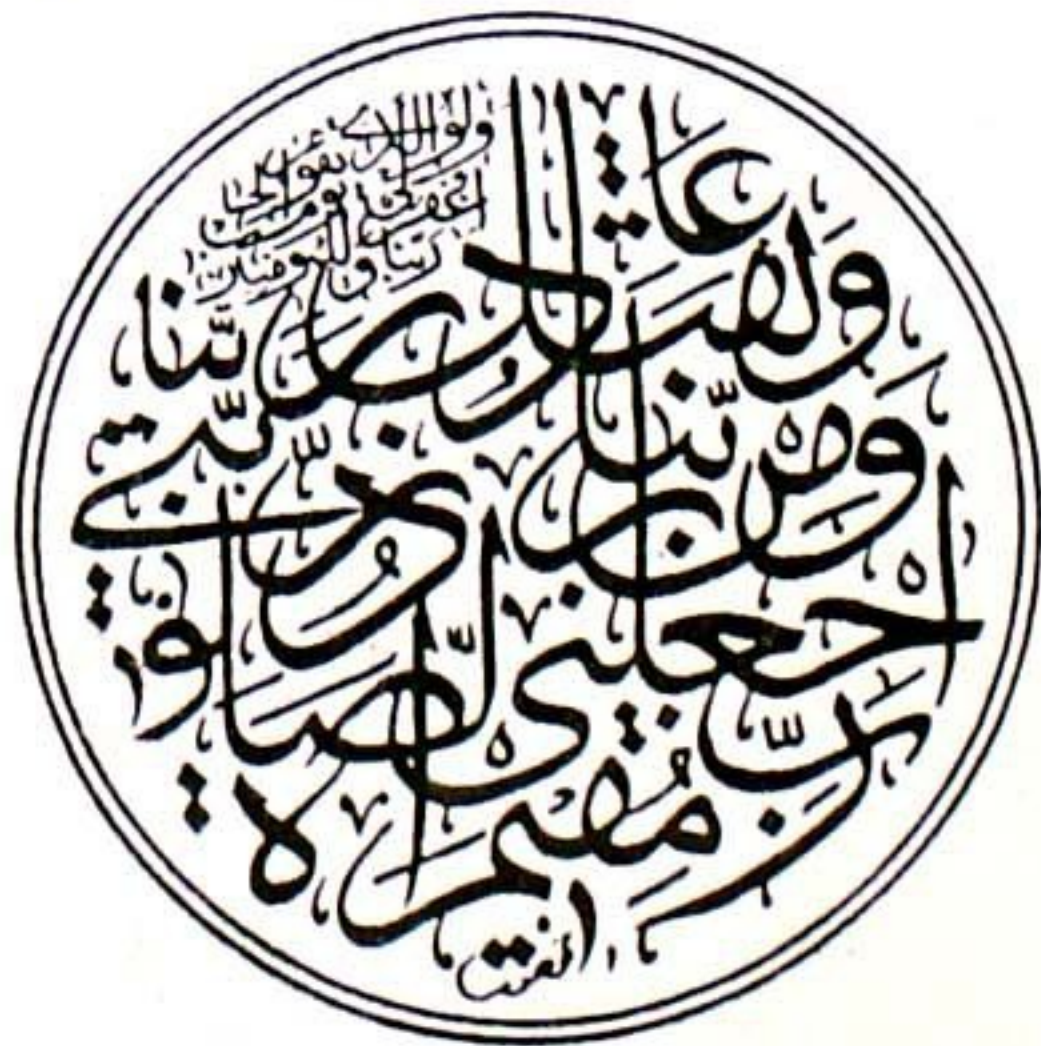 رَبِّ اجْعَلْنِي مُقِيمَ الصَّلٰوةِ
وَمِنْ ذُرِّيَّتِي
رَبَّنَا وَتَقَبَّلْ دُعَاءِ
ربنا اغفر لي
ولوالدي
وللمؤمنين
يوم يقوم الحساب